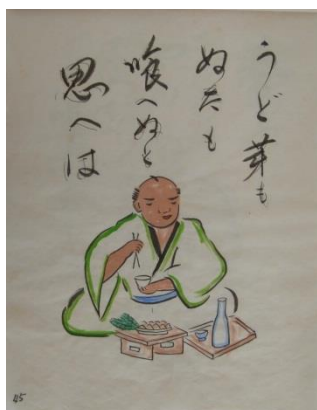 うど芽も
ぬたも
喰へぬと
思へは
45